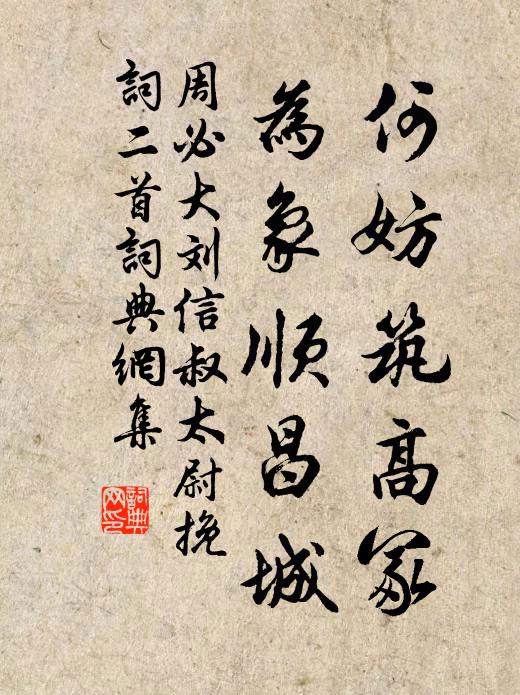 何妨筑高冢
為象順昌城
周必大刘信叔太尉挽
詞二首詞典網集
詞典
网印